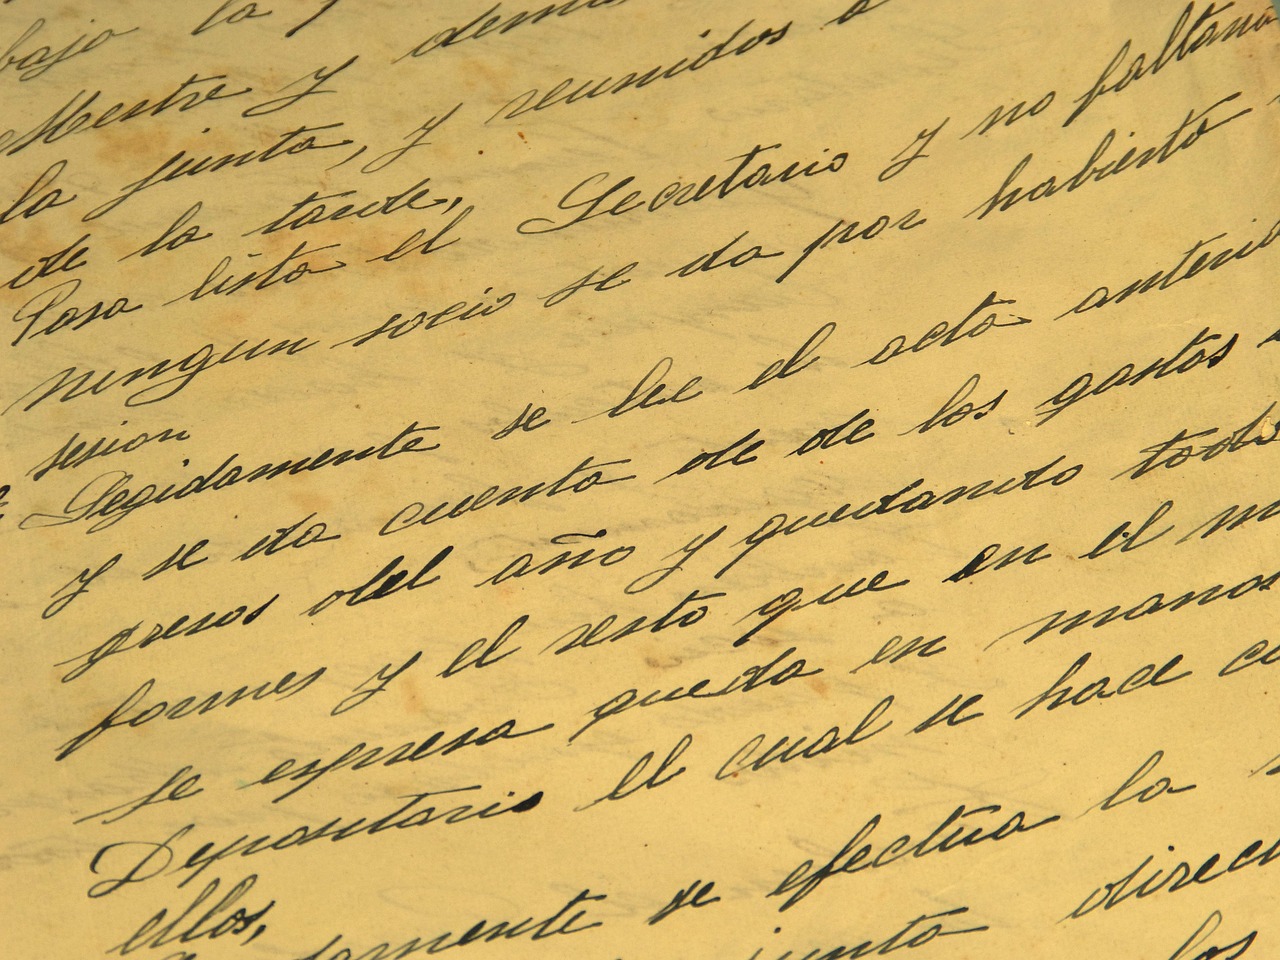 bajo la
Mestre y demas
la junta, y reunidos a
de la tarde,
Pasa lista el Secretario y no faltando
ningun socio se da por habierto
sesion
Segidamente se lee el acta anterior
y se da cuenta de de los gastos
gresos del año y quedando todos
formes y el resto que en el
se espresa queda en manos
Depositario el cual se hace
ellos,
se efectua la
junta direc
los